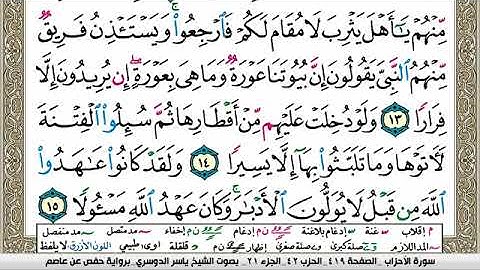 مِّنْهُمْ يَٰٓأَهْلَ يَثْرِبَ لَا مُقَامَ لَكُمْ فَٱرْجِعُوا۟ ۚ وَيَسْتَـْٔذِنُ فَرِيقٌ
مِّنْهُمُ ٱلنَّبِىَّ يَقُولُونَ إِنَّ بُيُوتَنَا عَوْرَةٌ وَمَا هِىَ بِعَوْرَةٍ ۖ إِن يُرِيدُونَ إِلَّا
فِرَارًا ١٣ وَلَوْ دُخِلَتْ عَلَيْهِم مِّنْ أَقْطَارِهَا ثُمَّ سُئِلُوا۟ ٱلْفِتْنَةَ
لَـَٔاتَوْهَا وَمَا تَلَبَّثُوا۟ بِهَآ إِلَّا يَسِيرًا ١٤ وَلَقَدْ كَانُوا۟ عَٰهَدُوا۟
ٱللَّهَ مِن قَبْلُ لَا يُوَلُّونَ ٱلْأَدْبَٰرَ ۚ وَكَانَ عَهْدُ ٱللَّهِ مَسْـُٔولًا ١٥
م إقلاب غنة إدغام بلاغنة إدغام إخفاء مد متصل مد منفصل
المد اللازم صلة كبرى صلة صغرى إظهار قلقلة طبيعي اللون الأزرق لا يلفظ
سورة الأحزاب _ الصفحة ٤١٩_ الحزب ٤٢_ الجزء ٢١_ بصوت الشيخ ياسر الدوسري _برواية حفص عن عاصم